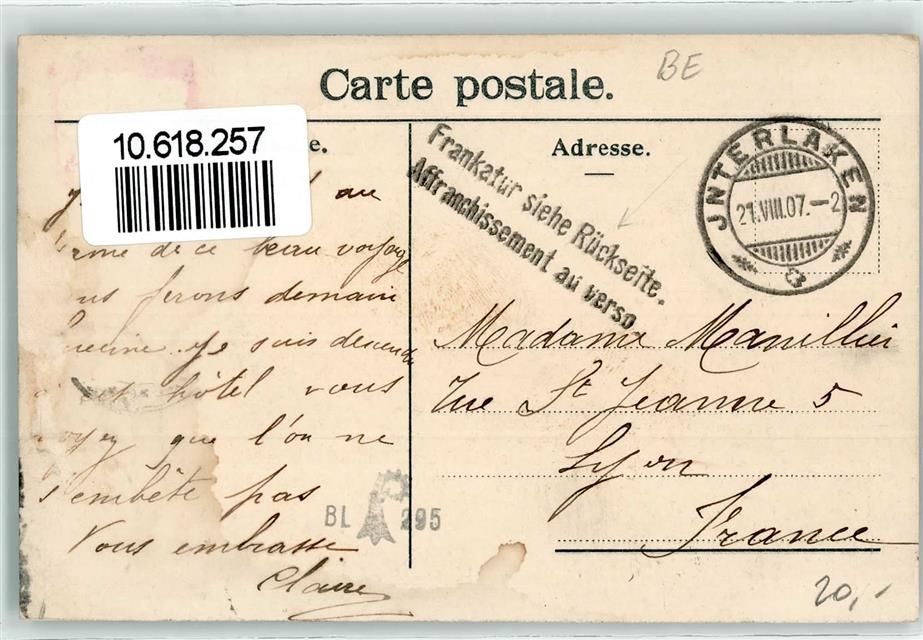 BE
Carte postale.
10.618.257
e.
Adresse.
Frankatur siehe Rückseite.
Affranchissement au verso
JNTERLAKEN
21.VIII.07.-2
au
de ce beau voyage
ferons demain
je suis descendu
hôtel vous
que l'on ne
s'embête pas
Vous embrasse
Claire
Madame Manillier
Rue St Jeanne 5
Lyon
France
BL 295
20,-